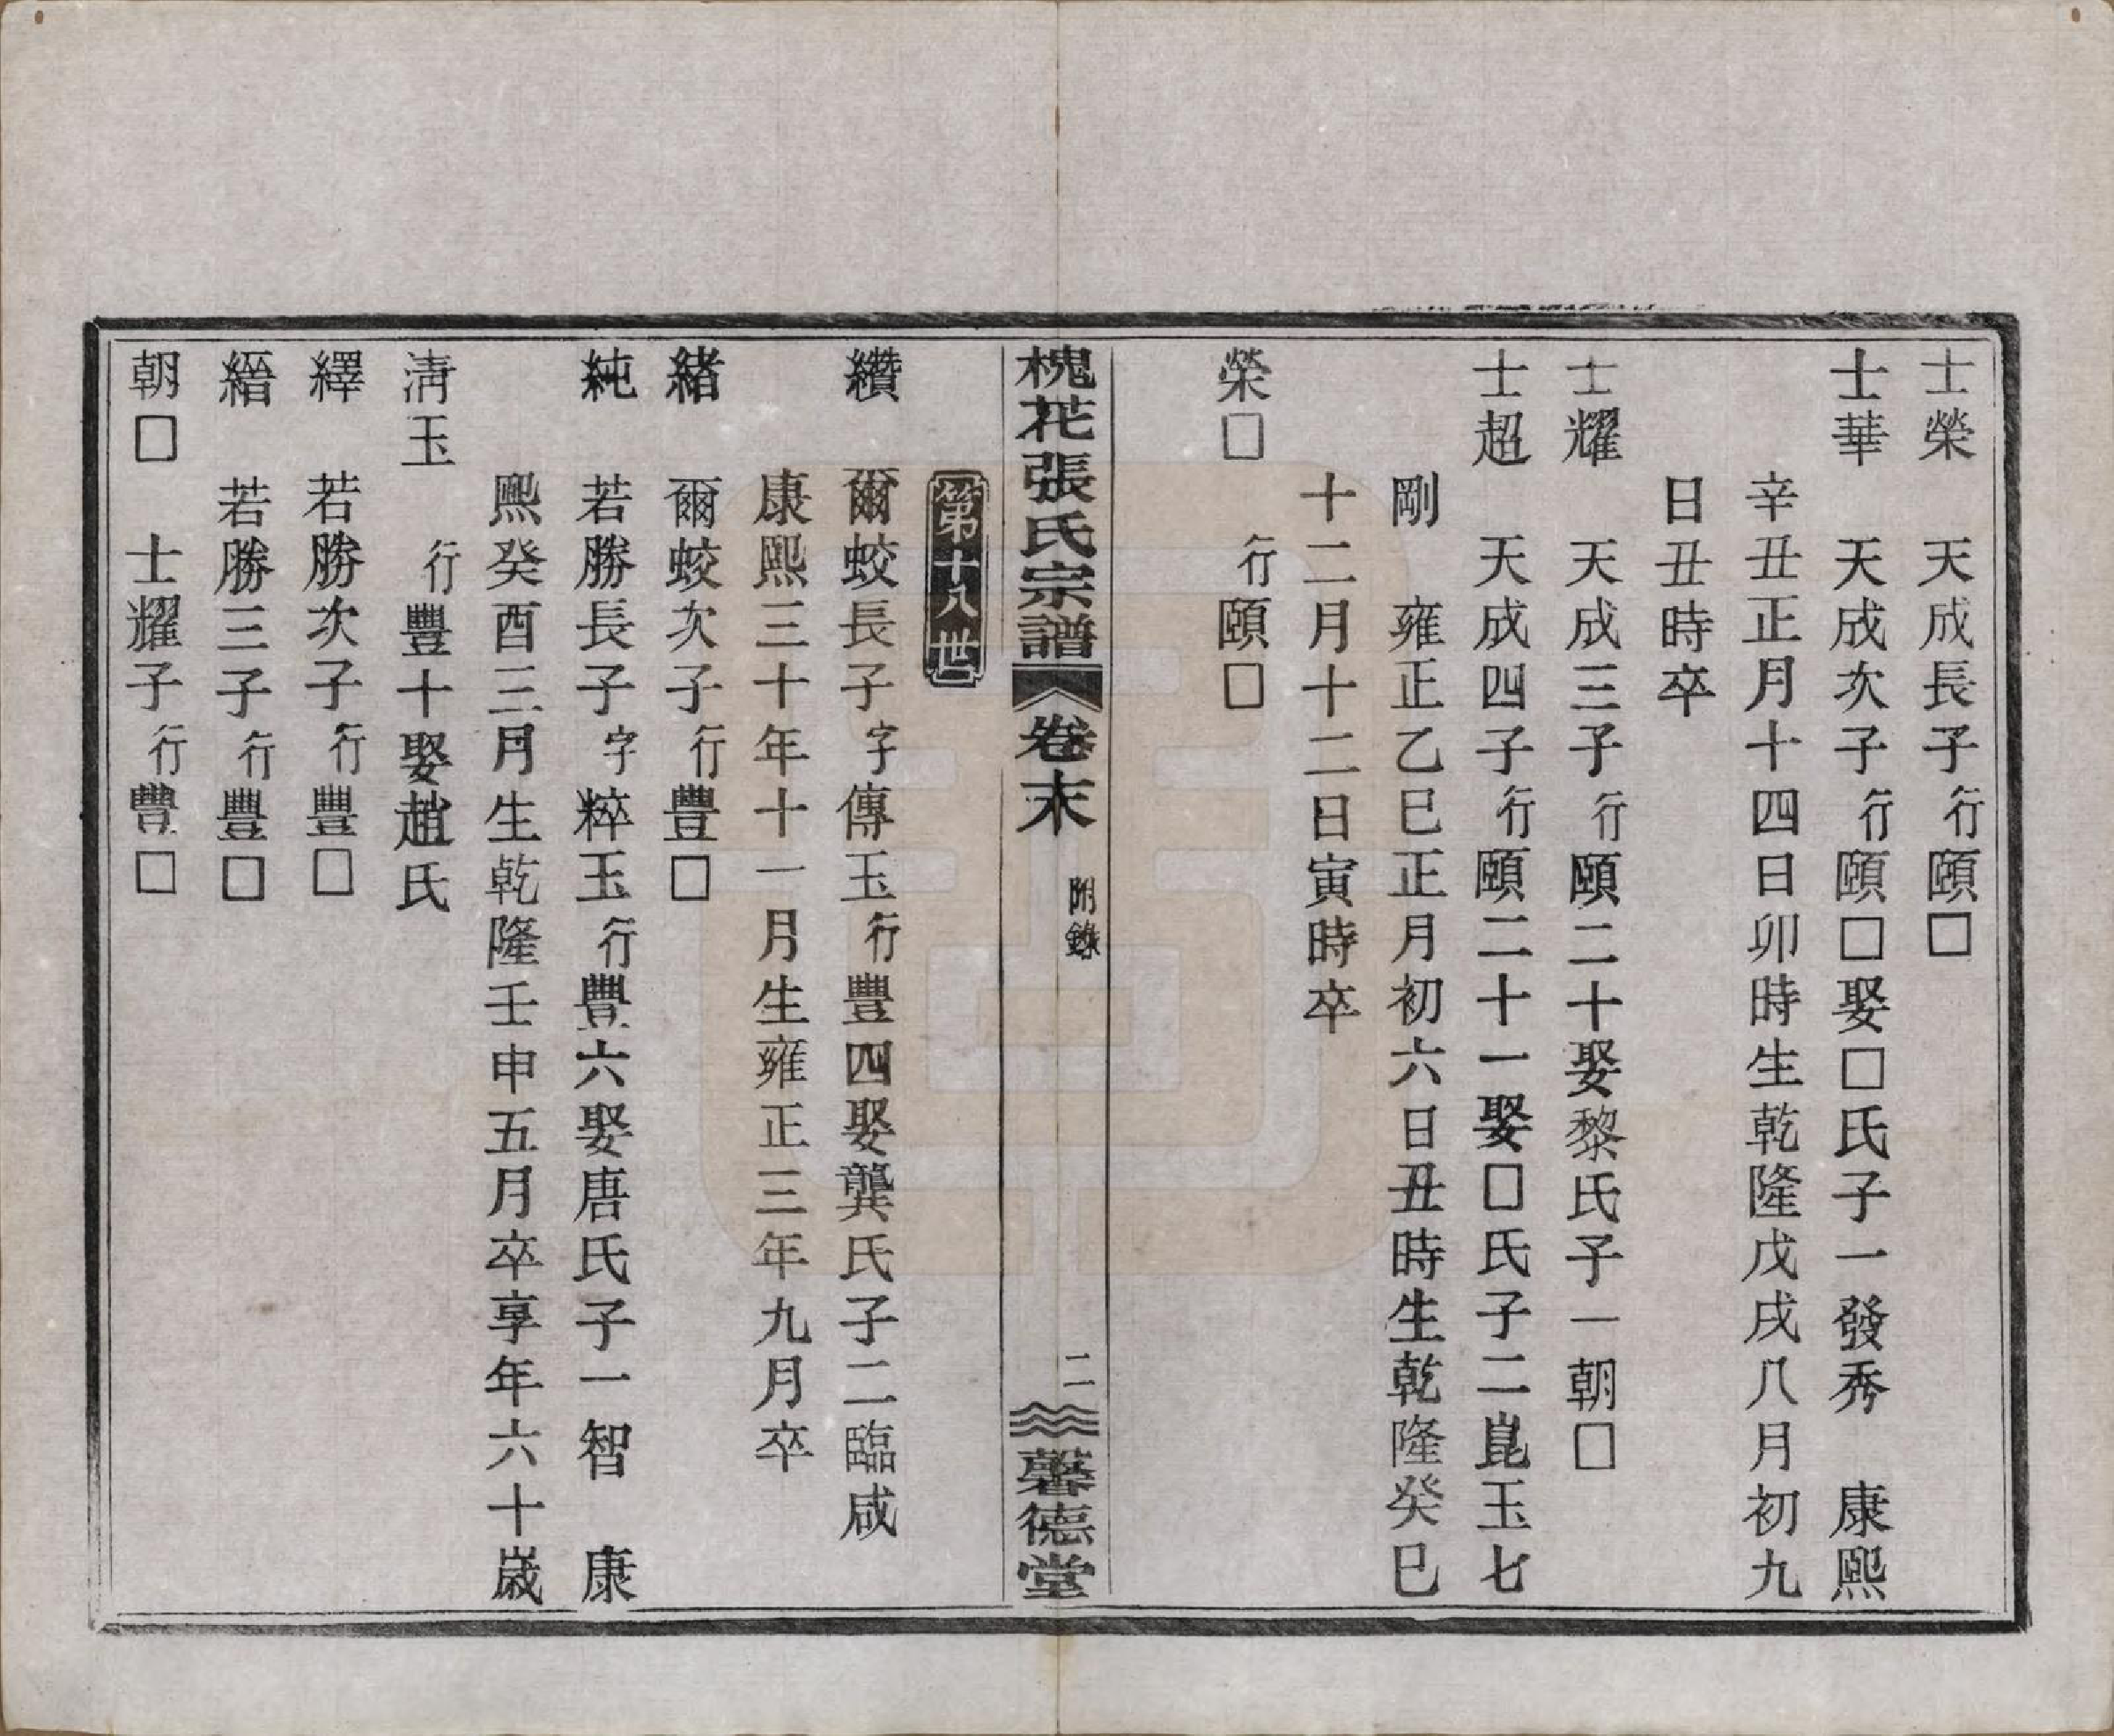 士榮　天成長子行頤□
士華　天成次子行頤□娶□氏子一發秀　康熙
辛丑正月十四日卯時生乾隆戊戌八月初九
日丑時卒
士耀　天成三子行頤二十娶黎氏子一朝□
士超　天成四子行頤二十一娶□氏子二崑玉七
剛　雍正乙巳正月初六日丑時生乾隆癸巳
十二月十二日寅時卒
榮□　行頤□
槐花張氏宗譜　卷末　附錄　二　馨德堂
第十八世
纘　爾蛟長子字傳玉行豐四娶龔氏子二臨咸
康熙三十年十一月生雍正三年九月卒
緒　爾蛟次子行豐□
純　若勝長子字粹玉行豐六娶唐氏子一智　康
熙癸酉三月生乾隆壬申五月卒享年六十歲
淸玉　行豐十娶趙氏
繹　若勝次子行豐□
縉　若勝三子行豐□
朝□　士耀子行豐□